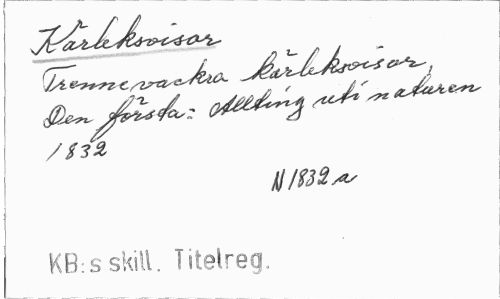 Kärleksvisor
Trenne vackra kärleksvisor,
Den första: Allting uti naturen
1832
N 1832 a
KB:s skill. Titelreg.